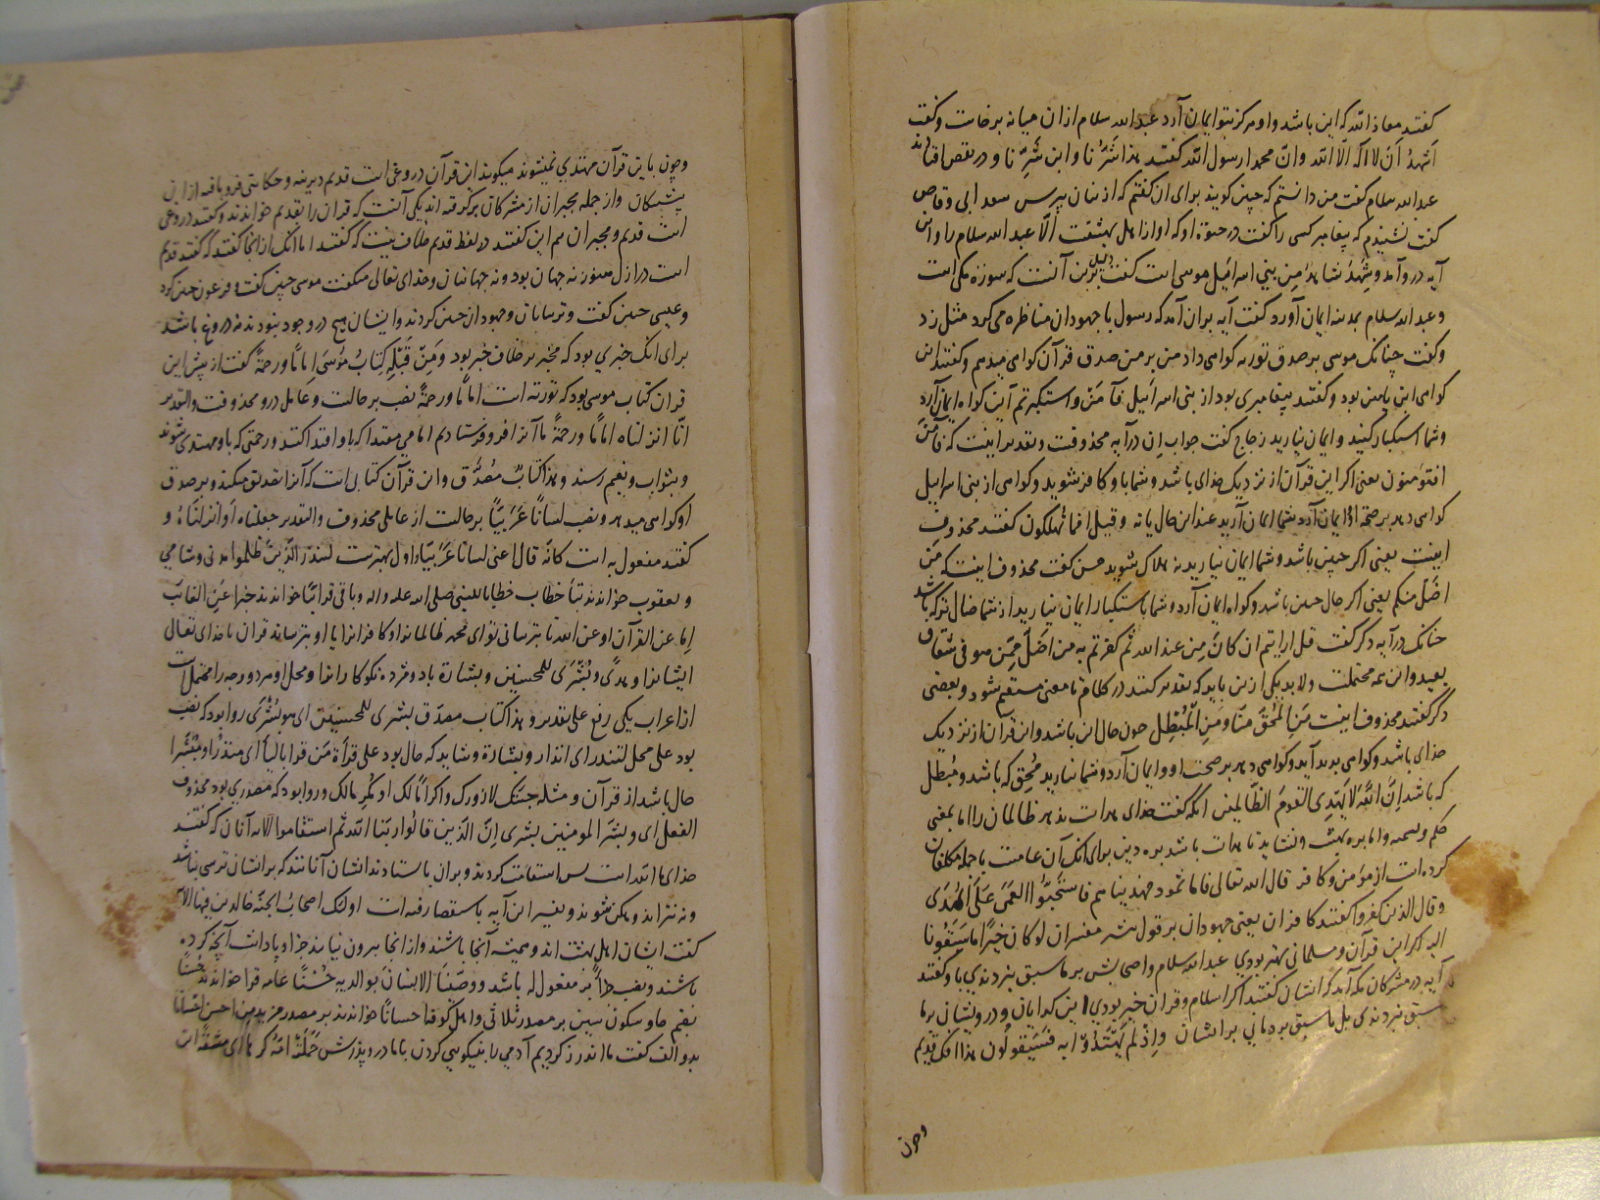 گفتند معاذ الله که این باشد و او هرگز بتو ایمان آرد عبدالله سلام از ان میانه برخاست و گفت
اَشهَدُ اَن لا اله الّا الله وانّ محمدا رسول الله گفتند هذا شَرُّنا و ابن شَرِّنا و در نقص افتادند
عبدالله سلام گفت من دانستم که چنین گویند برای ان گفتم که از شان بپرس سعد ابی وقاص
گفت نشنیدم که پیغامبر کسی را گفت در حیوة او که او از اهل بهشتست الّا عبدالله سلام را و این
آیه در و آمد و شَهِدَ شاهدٌ مِن بنی اسرائیل موسی است گفت دلیل برین آنست که سوره مکی است
و عبدالله سلام بمدینه ایمان آورد گفت آیه بران آمد که رسول با جهودان مناظره می کرد مثل زد
و گفت چنانک موسی بر صدق توریه گواهی داد من بر من صدق قرآن گواهی میدهم و گفتند این
گواهی ابن یامین بود و گفتند پیغامبری بود از بنی اسرائیل فآمَنَ و استکبرتم آن گواه ایمان آرد
و شما استکبار کنید و ایمان نیارید زجاج گفت جواب اِن در آیه محذوفست و تقدیر اینست که فآمَنَ
افتؤمنون یعنی اگر این قرآن از نزدیک خدای باشد و شما باو کافر شوید و گواهی از بنی اسرائیل
گواهی دهد بر صحّة او ایمان آرد شما ایمان آرید عند این حال یا نه و قیل افما تُهلکون گفتند محذوف
اینست یعنی اگر چنین باشد و شما ایمان نیارید نه هلاک شوید حسن گفت محذوف اینست که مَن
اضَلّ منکم یعنی اگر حال چنین باشد و گواه ایمان آرد و شما باستکبار ایمان نیارید از شما ضال تر که باشد
چنانک در آیه دگر گفت قل ارایتم ان کانَ مِن عند الله ثم کفرتم به من اضَلّ مِمَّن هو فی شقاق
بعید و این همه محتملست و لا بد یکی ازین باید که تقدیر کنند در کلام تا معنی مستقیم شود و بعضی
دگر گفتند محذوف اینست مَنِ الُمحِقّ مِنّا و مَنِ الُمبطِل چون حال این باشد و این قرآن از نزدیک
خدای باشد و گواهی بدید آید و گواهی دهد بر صحت او و ایمان آرد و شما نیارید مُحِق که باشد و مُبطِل
که باشد اِنّ اللّهَ لا یَهدِی القومَ الظّالمین انگه گفت خدای هدایت ندهد ظالمان را اما بمعنی
حکم و تسمیه و اما بره بهشت و نشاید تا هدایت باشد بره دین برای انک آن عامست با جمله مکلفان
کرده است از مؤمن و کافر قال الله تعالی فاما ثمود فهدیناهم فاستَحَبُّوا العَمَی عَلَی الهُدَی
و قال الذین کفروا گفتند کافران یعنی جهودان بر قول بیشتر مفسران لو کان خیرًا ما سَبَقُونا
الیه اگر این قرآن و مسلمانی بهتر بودی عبدالله سلام و اصحابش بر ما سبق نبردندی باو گفتند
آیه در مشرکان مکه آمد که ایشان گفتند اگر اسلام و قرآن خیر بودی این گدایان و درویشان بر ما
سبق نبردندی بل ما سبق بردمانی بر ایشان و اِذ لَم یَهتَدُوا به فَسَیَقولُون هذا افک قدیم
وچون
وچون باین قرآن مهتدی نمیشوند میگویند این قرآن دروغی است قدیم دیرینه و حکایتی فرو بافته از ان
پیشینگان و از جمله مجبران از مشرکان برگرفته اند یکی آنست که قرآن را بقدیم خوانند و گفتند دروغی
است قدیم و مجبران هم این گفتند در لفظ قدیم خلاف نیست که گفتند اما انک از انجا گفتند که گفتند قدیم
است در ازل هنوز نه جهان بود و نه جهانیان و خدای تعالی میگفت موسی چنین گفت و فرعون چنین کرد
و عیسی چنین گفت و ترسایان و جهودان چنین کردند و ایشان هیچ در وجود نبودند نه دروغ باشد
برای انک خبری بود که مخبر بر خلاف خبر بود و مَن قَبْلِه کِتابُ مُوسَی اِمامًا و رحمةً گفت از پیش این
قرآن کتاب موسی بود که توریة است امامًا و رحمةً نصب بر حالست و عامل درو محذوفست و التقدیر
انّا انزلناه امامًا و رحمةً ما آنرا فرو فرستادیم امامی مقتدا که باو اقتدا کنند و رحمتی که باو مهتدی شوند
و بثواب و نعیم رسند و هذا کِتابٌ مُصَدِّق و این قرآن کتابی است که آنرا تصدیق میکند و بر صدق
او گواهی میدهد و نصب لسانًا عَرَبیًّا بر حالست از عاملی محذوف و التقدیر جعلناه او انزلناهُ و
گفتند مفعول به است کانّه قال اعنی لسانا عربیّا و اول بهترست لینذر الّذینَ ظلموا مدنی و شامی
و یعقوب خواندند بتآ خطاب خطابا للنبی صلی الله علیه و اله و باقی قرا بیا خوانند خبرا عَنِ الغائب
اِما عن القرآن او عن الله تا بترسانی تو ای محمد ظالمانرا و کافرانرا یا او بترساند قرآن یا خدای تعالی
ایشانرا و هدیً و بُشْرَی للمحسنین و بشارة باد و مژده نکوکارانرا و محل او هر دو وجه را محتملست
از اعراب یکی رفع علی تقدیر و هذا کتاب مصدّق بشری للمحسنین ای هو بُشْرَی روا بود که نصب
بود علی محل لتنذر ای انذار و بشارة و شاید که حال بود علی قرأة مَن قرا بالیآ ای منذرًا و مُبَشّرا
حال باشد از قرآن و مثله جئتک لازورک و اکرامًا لک او مُکرم لک و روا بود که مصدری بود محذوف
الفعل ای و بشّر المومنین بشری اِنّ الّذین قالوا ربّنا اللّه ثم استقاموا الآیه آنان که گفتند
خدای ما الله است پس استقامت کردند و بران باستادند ایشان آنانند که بر ایشان ترسی نباشد
و نه نترسند و غمگین نشوند و تفسیر این آیه باستقصا رفته است اولئک اصحابُ الجنّة خالدین فیها الآیه
گفت ایشان اهل بهشت اند و همیشه آنجا باشند و از انجا بیرون نیایند جزا و پاداشت آنچه کرده
باشند و نصب جزاً بر مفعول له باشد و وصّینا الاِنسانَ بوالدیه حُسْنًا عامه قرا خواندند حُسْنًا
بضم حا و سکون سین بر مصدر ثلاثی و اهل کوفه احسانًا خواندند بر مصدر مزید مِن احسن احسانًا
بدو الف گفت ما اندرز کردیم آدمی را بنیکویی کردن با مادر و پدرش حَمَلَتْهُ اُمّهُ کُرهًا ای مشقّةً است